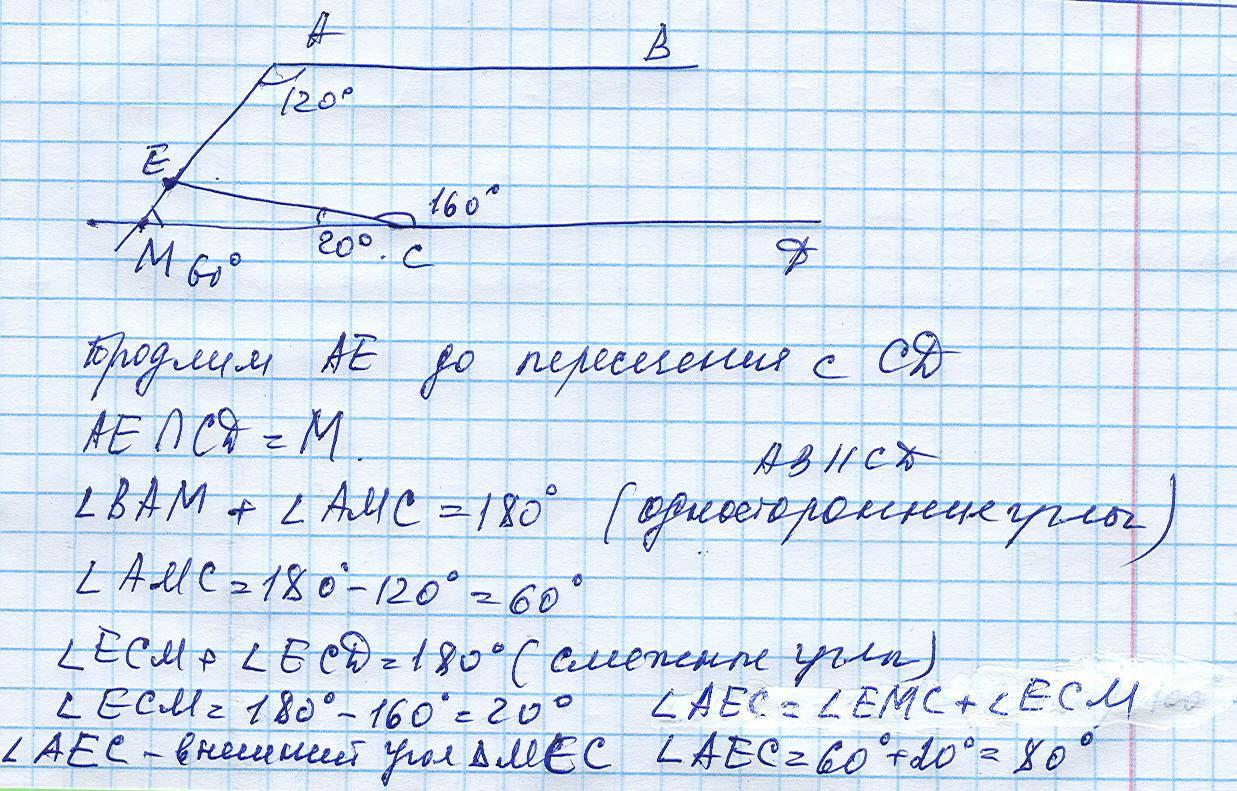 A B
120°
E
160°
20° C
M 60° D
Продлим AE до пересечения с CD
AE ∩ CD = M.
AB || CD
∠BAM + ∠AMC = 180° (односторонние углы)
∠AMC = 180° - 120° = 60°
∠ECM + ∠ECD = 180° (смежные углы)
∠ECM = 180° - 160° = 20° ∠AEC = ∠EMC + ∠ECM
∠AEC - внешний угол ΔMEC ∠AEC = 60° + 20° = 80°